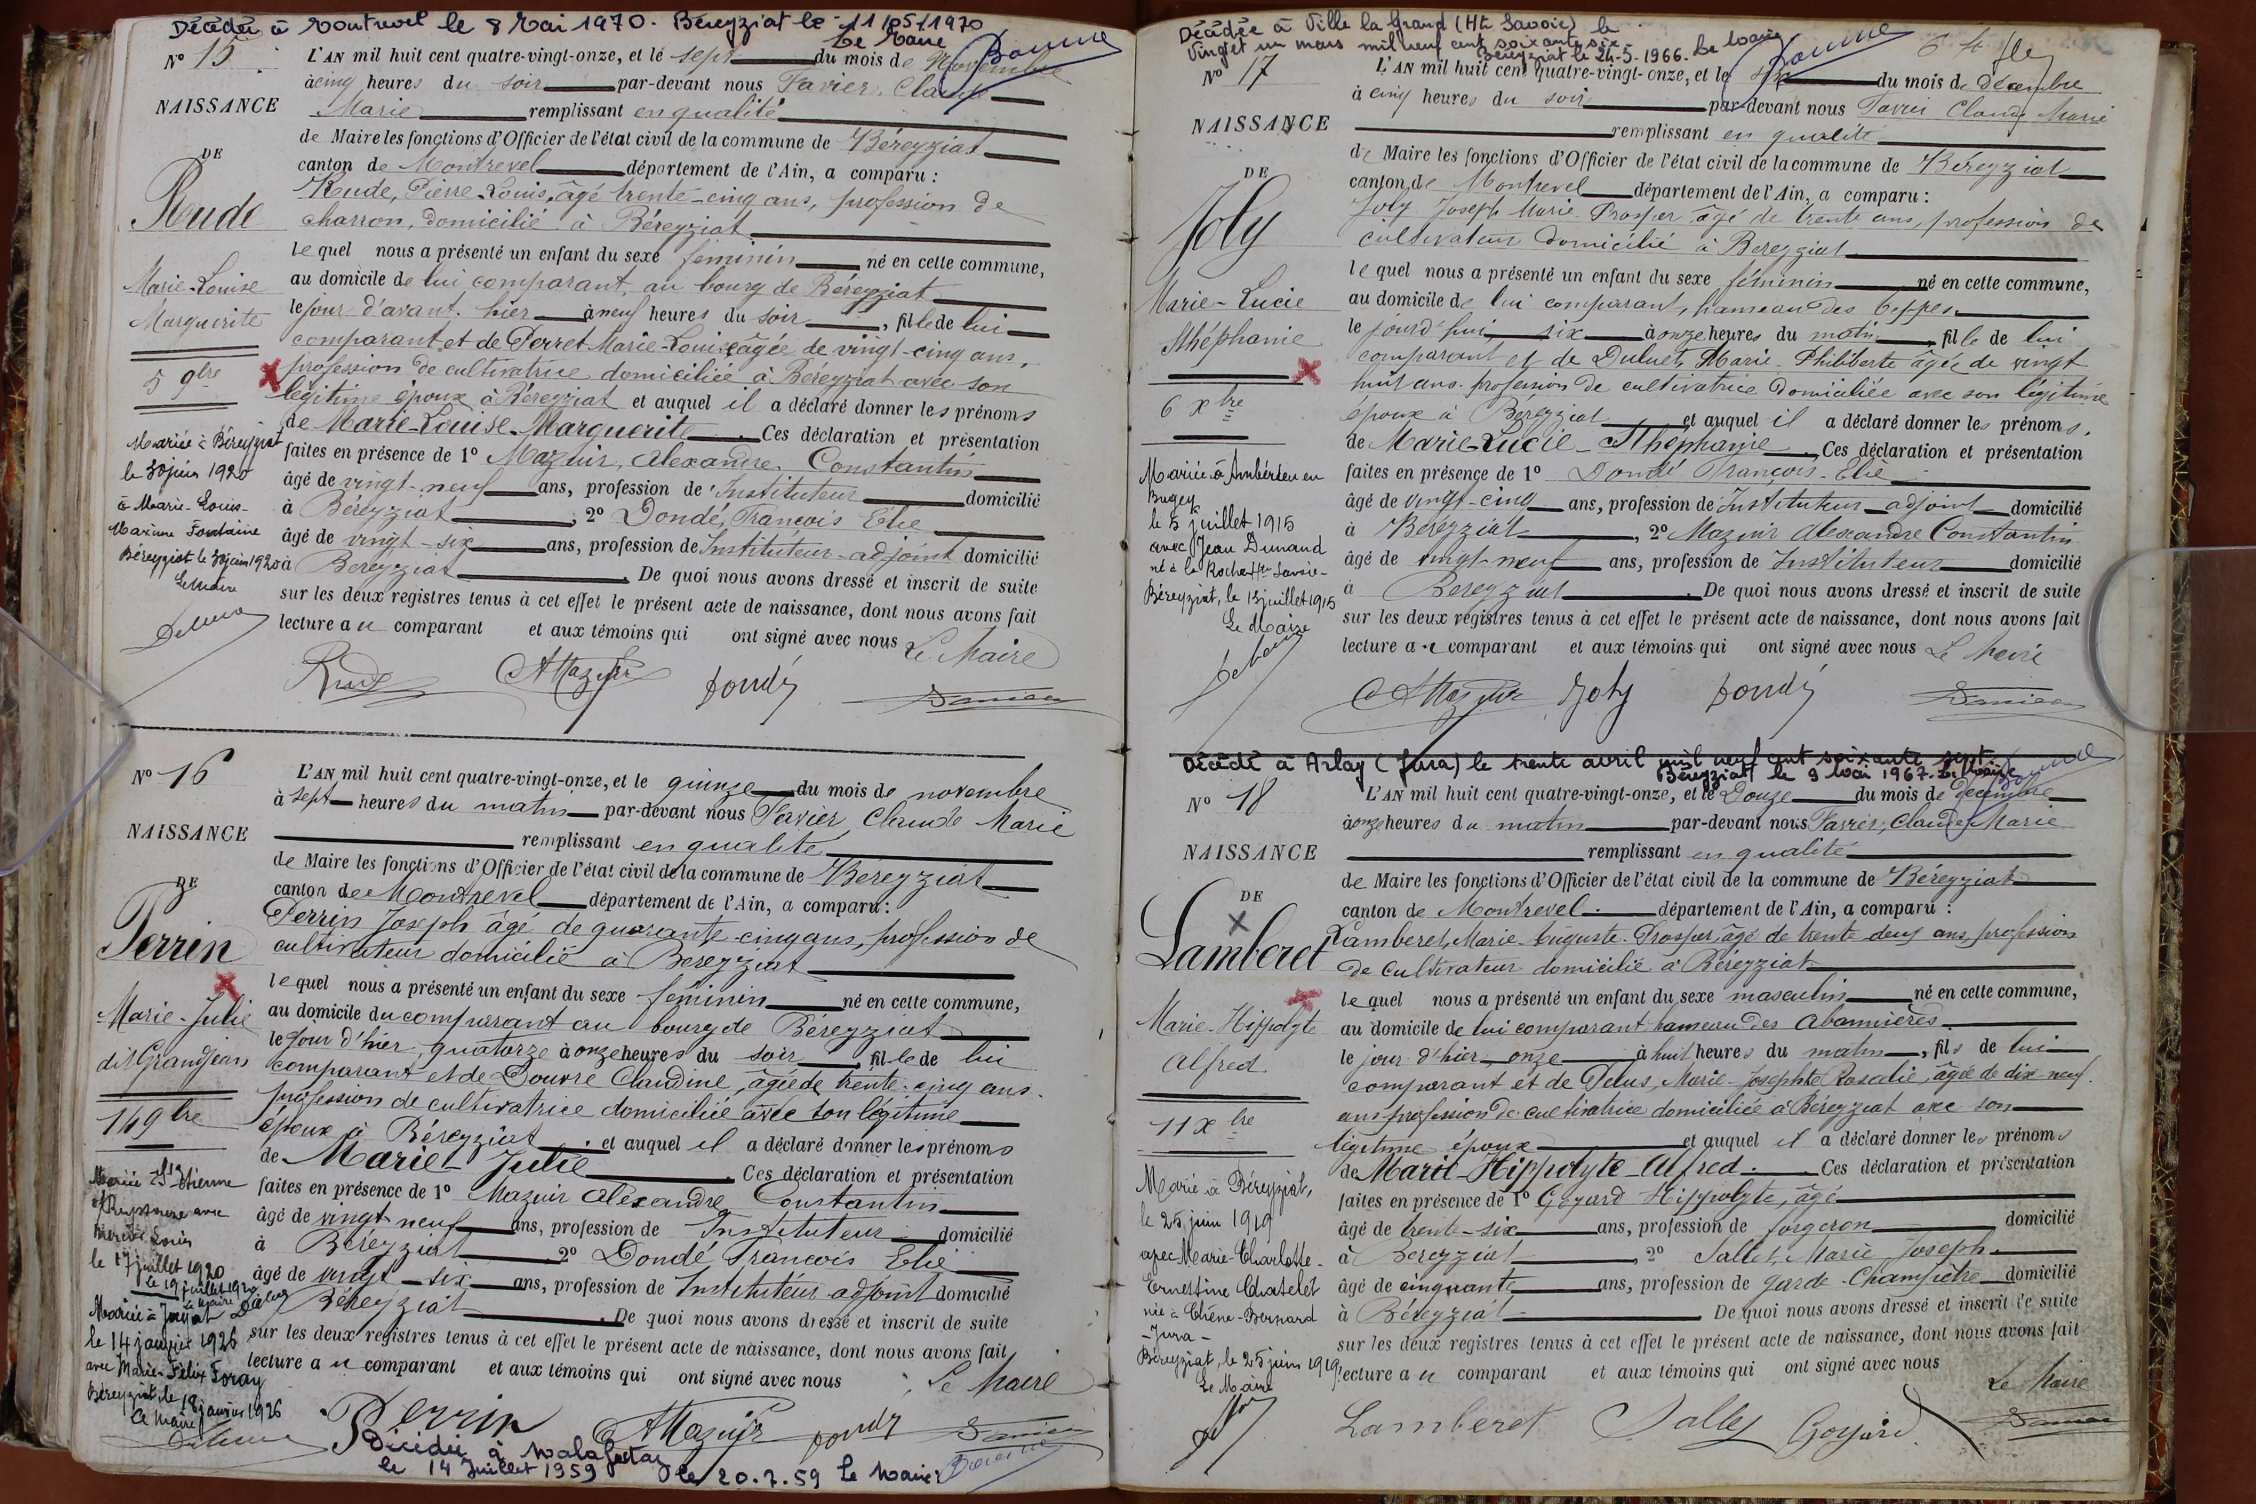 Décédée à Montrevel le 8 Mai 1970. Béreyziat le 11/05/1970
Le Maire
N° 15
L'AN mil huit cent quatre-vingt-onze, et le sept du mois de Novembre
à cinq heures du soir par-devant nous Favier, Claude
NAISSANCE
Marie remplissant en qualité
de Maire les fonctions d'Officier de l'état civil de la commune de Béreyziat
DE
canton de Montrevel département de l'Ain, a comparu :
Rude, Pierre-Louis, âgé trente-cinq ans, profession de
Rude
charron, domicilié à Béreyziat
lequel nous a présenté un enfant du sexe féminin né en cette commune,
Marie-Louise
au domicile de lui comparant, au bourg de Béreyziat
Marguerite
le jour d'avant-hier à neuf heures du soir, fille de lui
comparant et de Perret Marie-Louise, âgée de vingt-cinq ans,
5 9bre
profession de cultivatrice domiciliée à Béreyziat avec son
légitime époux à Béreyziat et auquel il a déclaré donner les prénoms
de Marie-Louise-Marguerite. Ces déclaration et présentation
Mariée à Béreyziat
le 30 juin 1920
à Marie-Louis-
Maxime Fontaine
Béreyziat le 30 juin 1920
Le Maire
faites en présence de 1° Mazuir, Alexandre Constantin
âgé de vingt-neuf ans, profession de Instituteur domicilié
à Béreyziat, 2° Dondé, François Elie
âgé de vingt-six ans, profession de Instituteur-adjoint domicilié
à Béreyziat. De quoi nous avons dressé et inscrit de suite
sur les deux registres tenus à cet effet le présent acte de naissance, dont nous avons fait
lecture au comparant et aux témoins qui ont signé avec nous Le Maire
Rude AMazuir Dondé
N° 16
L'AN mil huit cent quatre-vingt-onze, et le quinze du mois de novembre
à sept heures du matin par-devant nous Favier, Claude Marie
NAISSANCE
remplissant en qualité
de Maire les fonctions d'Officier de l'état civil de la commune de Béreyziat
DE
canton de Montrevel département de l'Ain, a comparu :
Perrin Joseph âgé de quarante-cinq ans, profession de
Perrin
cultivateur domicilié à Béreyziat
lequel nous a présenté un enfant du sexe féminin né en cette commune,
Marie-Julie
au domicile du comparant au bourg de Béreyziat
dit Grandjean
le jour d'hier, quatorze à onze heures du soir, fille de lui
comparant et de Bouvre Claudine, âgée de trente-cinq ans
14 9bre
profession de cultivatrice domiciliée avec son légitime
époux à Béreyziat. et auquel il a déclaré donner les prénoms
de Marie-Julie. Ces déclaration et présentation
Mariée à St Etienne
avec
Louis
le 17 juillet 1920
le 19 juillet 1920
Le Maire
Mariée à
le 14 janvier 1926
avec Marie-Félix Foray
Béreyziat, le 18 janvier 1926
Le Maire
faites en présence de 1° Mazuir Alexandre Constantin
âgé de vingt-neuf ans, profession de Instituteur domicilié
à Béreyziat 2° Dondé François Elie
âgé de vingt-six ans, profession de Instituteur-adjoint domicilié
Béreyziat. De quoi nous avons dressé et inscrit de suite
sur les deux registres tenus à cet effet le présent acte de naissance, dont nous avons fait
lecture au comparant et aux témoins qui ont signé avec nous Le Maire
Perrin AMazuir Dondé
Décédée à Malafretaz
le 14 Juillet 1959 le 20.7.59 Le Maire
Décédée à Ville la Grand (Hte Savoie) le
Vingt et un mars mil neuf cent soixante six
Béreyziat le 24-5-1966. Le Maire
N° 17
L'AN mil huit cent quatre-vingt-onze, et le six du mois de décembre
à cinq heures du soir par-devant nous Favier Claude Marie
NAISSANCE
remplissant en qualité
de Maire les fonctions d'Officier de l'état civil de la commune de Béreyziat
DE
canton de Montrevel département de l'Ain, a comparu :
Joly Joseph Marie Prosper âgé de trente ans, profession de
Joly
cultivateur domicilié à Béreyziat
lequel nous a présenté un enfant du sexe féminin né en cette commune,
Marie-Lucie
au domicile de lui comparant, hameau des
Sthéphanie
le jourd'hui six à onze heures du matin, fille de lui
comparant et de Marie-Philiberte âgée de vingt
huit ans, profession de cultivatrice domiciliée avec son légitime
6 Xbre
époux à Béreyziat et auquel il a déclaré donner les prénoms
de Marie-Lucie-Sthéphanie. Ces déclaration et présentation
Mariée à Ambérieu en
Bugey
le 5 juillet 1915
avec Jean Dunand
né à la Roche Hte Savoie-
Béreyziat, le 13 juillet 1915
Le Maire
faites en présence de 1° Dondé François-Elie
âgé de vingt-cinq ans, profession de Instituteur adjoint domicilié
à Béreyziat, 2° Mazuir Alexandre Constantin
âgé de vingt-neuf ans, profession de Instituteur domicilié
à Béreyziat. De quoi nous avons dressé et inscrit de suite
sur les deux registres tenus à cet effet le présent acte de naissance, dont nous avons fait
lecture au comparant et aux témoins qui ont signé avec nous Le Maire
AMazuir Joly Dondé
Décédé à Arlay (Jura) le trente avril mil neuf cent soixante sept
Béreyziat le 9 Mai 1967. Le Maire
N° 18
L'AN mil huit cent quatre-vingt-onze, et le Douze du mois de décembre
à onze heures du matin par-devant nous Favier, Claude Marie
NAISSANCE
remplissant en qualité
de Maire les fonctions d'Officier de l'état civil de la commune de Béreyziat
DE
canton de Montrevel département de l'Ain, a comparu :
Lamberet, Marie-Auguste-Prosper, âgé de trente deux ans, profession
Lamberet
de cultivateur domicilié à Béreyziat
lequel nous a présenté un enfant du sexe masculin né en cette commune,
Marie-Hippolyte
au domicile de lui comparant hameau des Abannières
Alfred
le jour d'hier, onze à huit heures du matin, fils de lui
comparant et de Pelus, Marie-Josephte Rosalie, âgée de dix-neuf
11 Xbre
ans profession de cultivatrice domiciliée à Béreyziat avec son
légitime époux et auquel il a déclaré donner les prénoms
de Marie-Hippolyte-Alfred. Ces déclaration et présentation
Marié à Béreyziat,
le 25 juin 1919
avec Marie-Charlotte-
Ernestine Chatelet
née à Chêne-Bernard
-Jura-
Béreyziat, le 25 juin 1919
Le Maire
faites en présence de 1° Goyard Hippolyte, âgé
âgé de trente-six ans, profession de forgeron domicilié
à Béreyziat, 2° Sallet, Marie Joseph
âgé de cinquante ans, profession de garde-champêtre domicilié
à Béreyziat De quoi nous avons dressé et inscrit de suite
sur les deux registres tenus à cet effet le présent acte de naissance, dont nous avons fait
lecture au comparant et aux témoins qui ont signé avec nous
Le Maire
Lamberet Salley Goyard